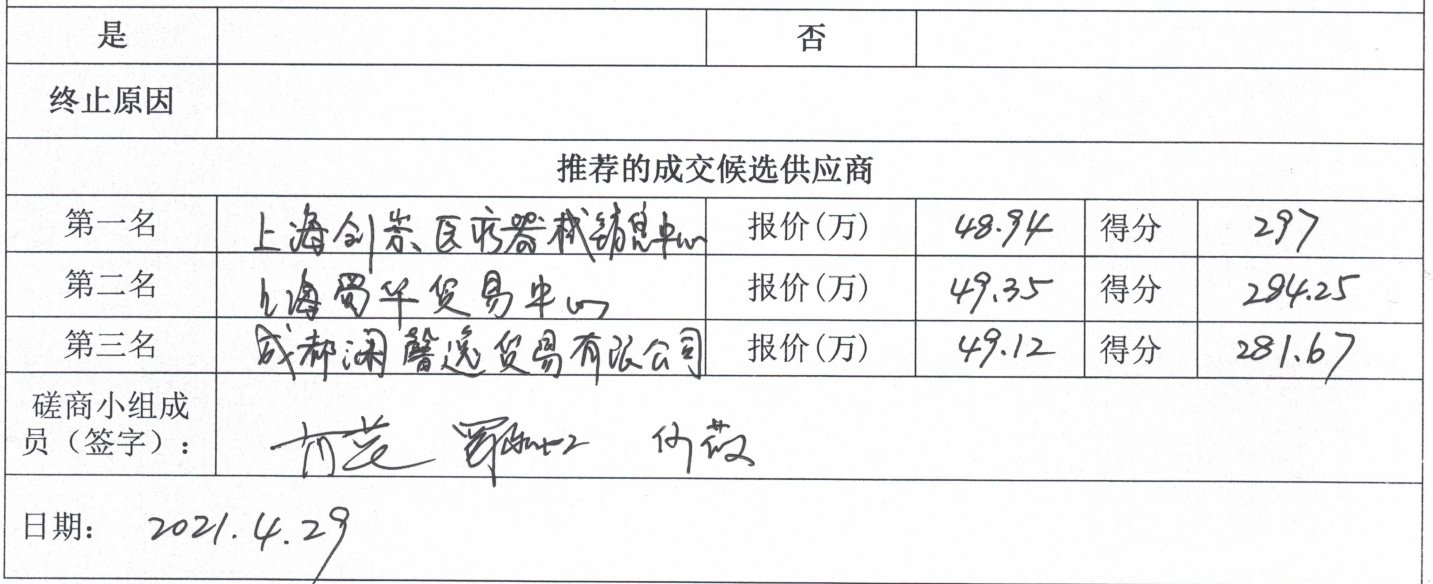 是 否
终止原因
推荐的成交候选供应商
第一名 上海创崇医疗器械销售中心 报价(万) 48.94 得分 297
第二名 上海蜀华贸易中心 报价(万) 49.35 得分 284.25
第三名 成都润馨逸贸易有限公司 报价(万) 49.12 得分 281.67
磋商小组成
员（签字）:
日期: 2021.4.29